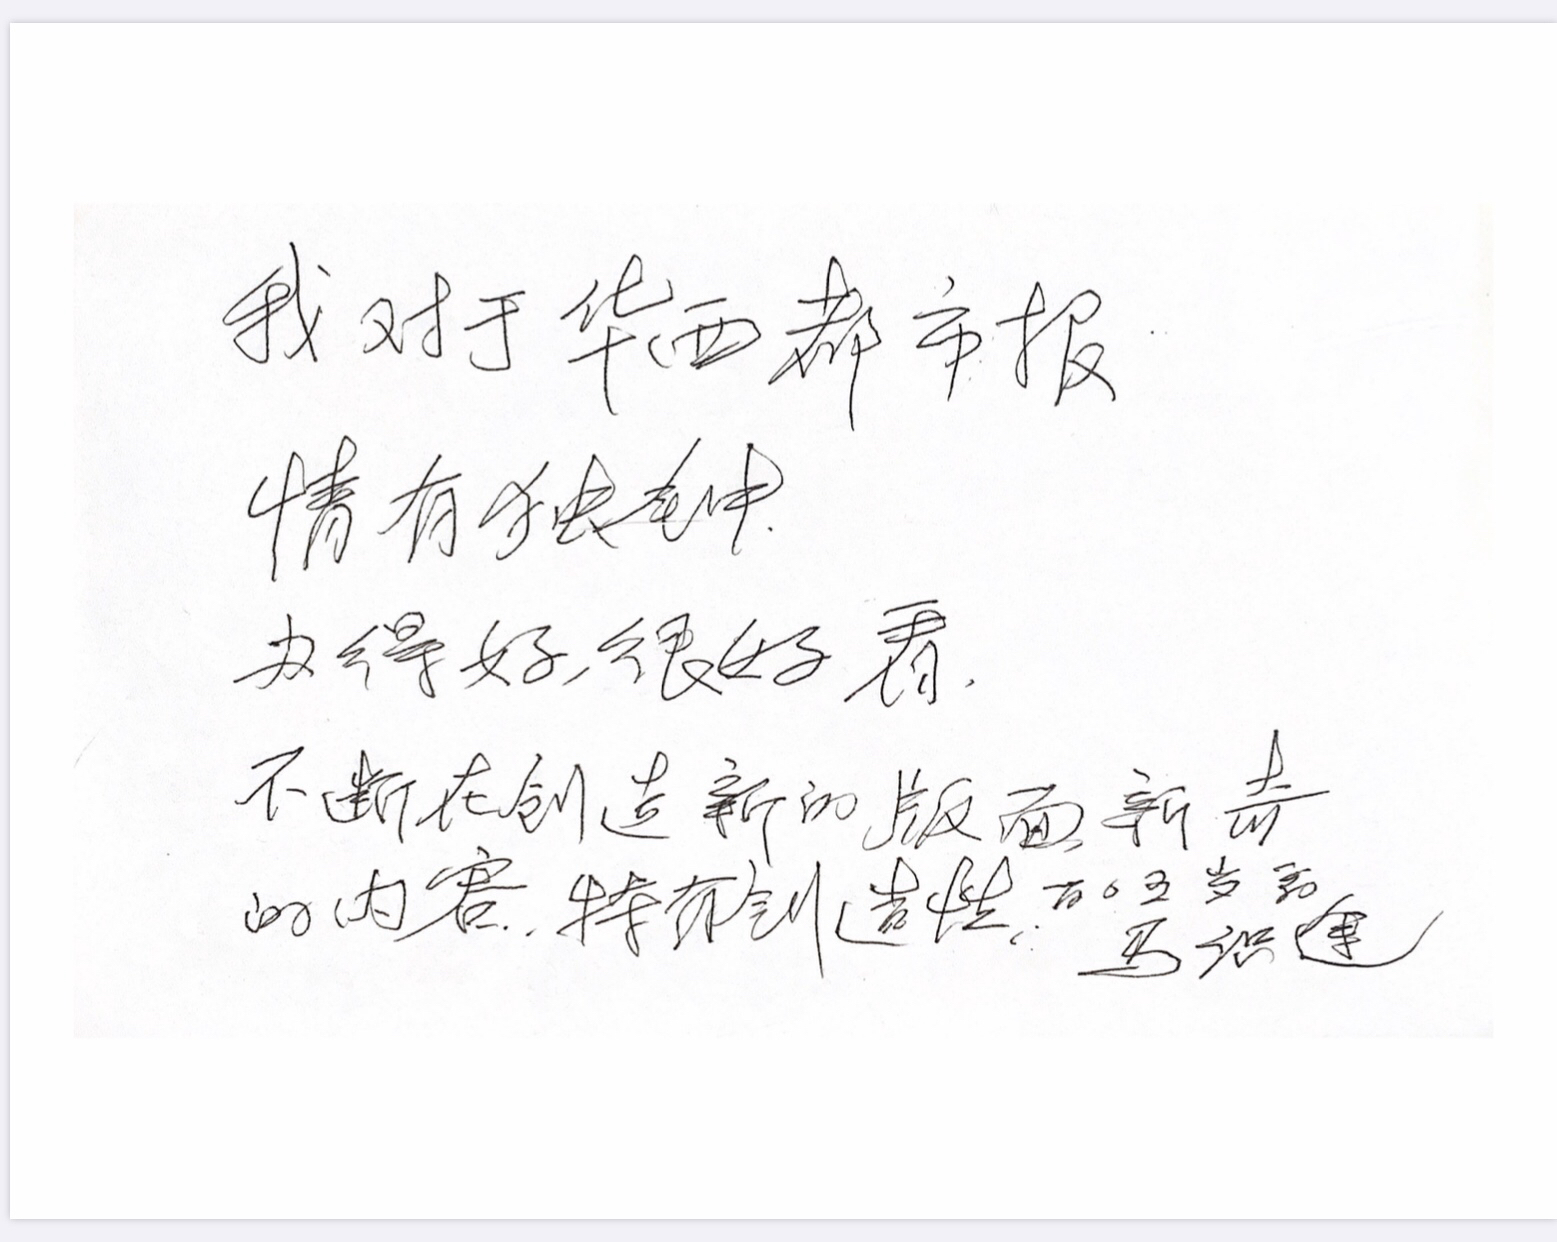 我对于华西都市报
情有独钟.
办得好,很好看.
不断在创造新的版面,新奇
的内容.特有创造性.
百〇五岁翁
马识途